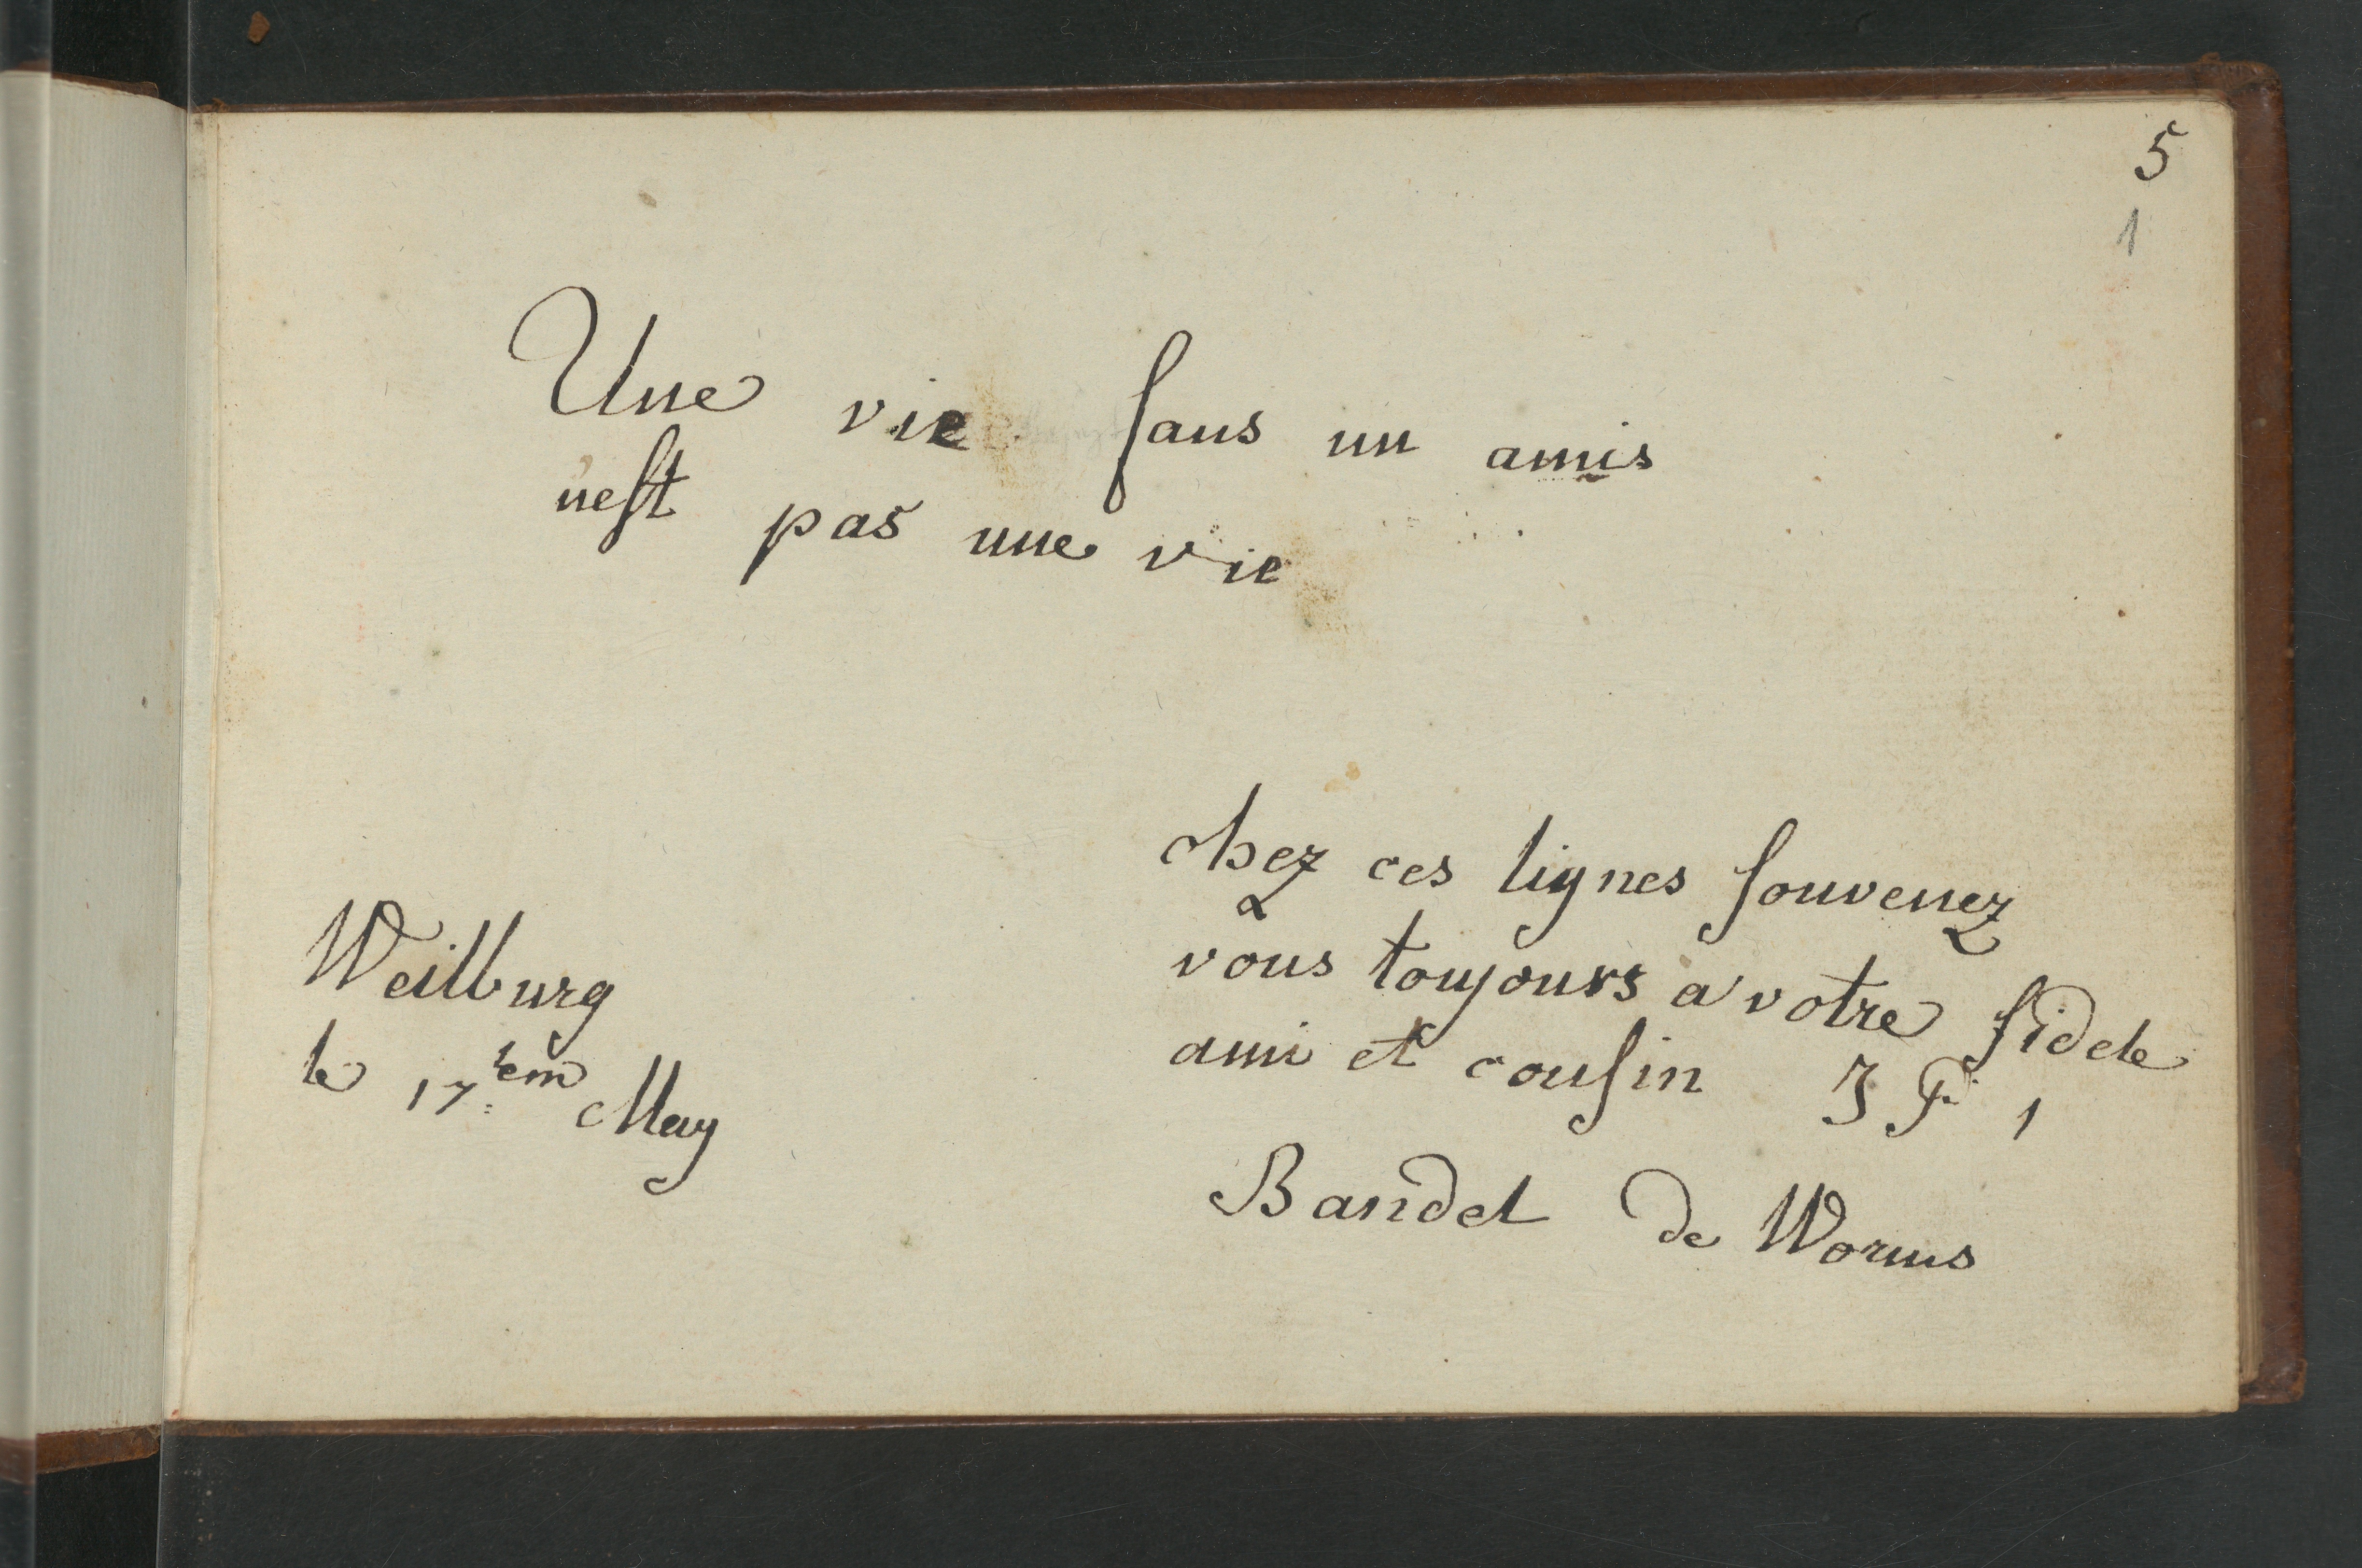 5
1
Une vie ſans un amis
n'eſt pas une vie
chez ces lignes ſouvenez
vous toujours à votre fidele
ami et couſin J F
Bandel de Worms
Weilburg
le 17tem May